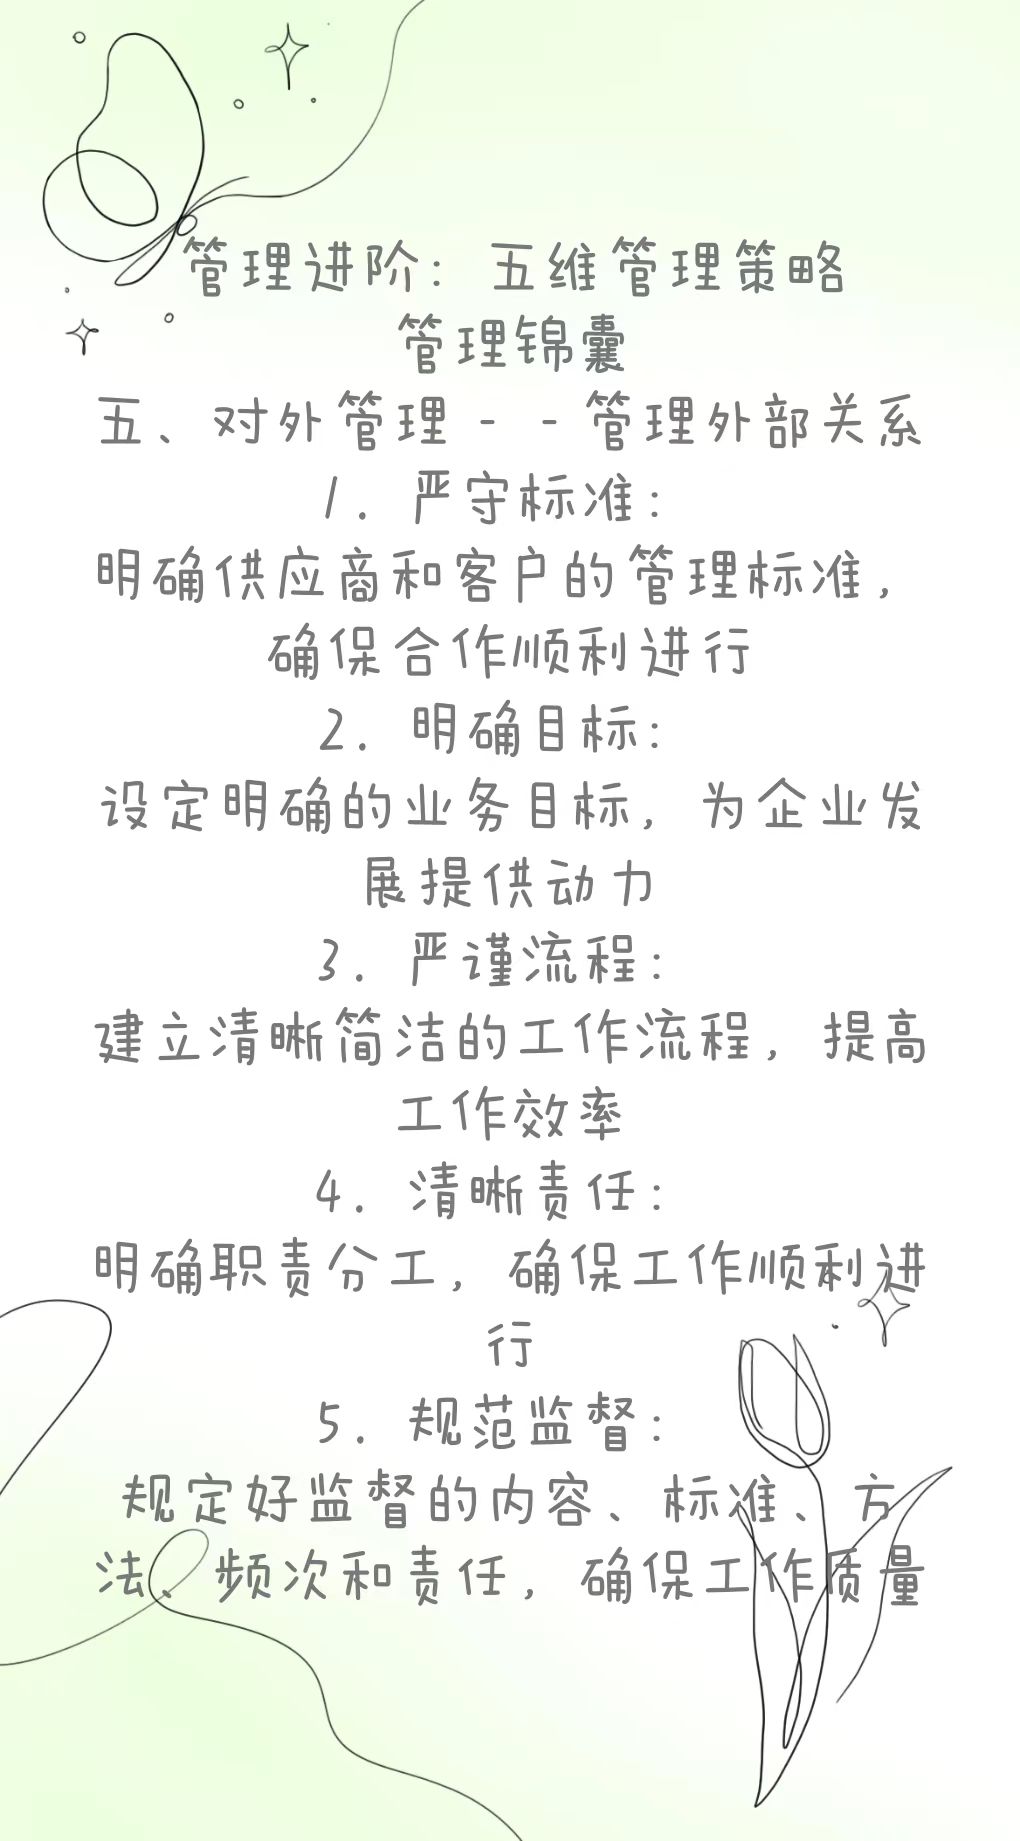 管理进阶：五维管理策略
管理锦囊
五、对外管理--管理外部关系
1. 严守标准：
明确供应商和客户的管理标准，
确保合作顺利进行
2. 明确目标：
设定明确的业务目标，为企业发
展提供动力
3. 严谨流程：
建立清晰简洁的工作流程，提高
工作效率
4. 清晰责任：
明确职责分工，确保工作顺利进
行
5. 规范监督：
规定好监督的内容、标准、方
法、频次和责任，确保工作质量